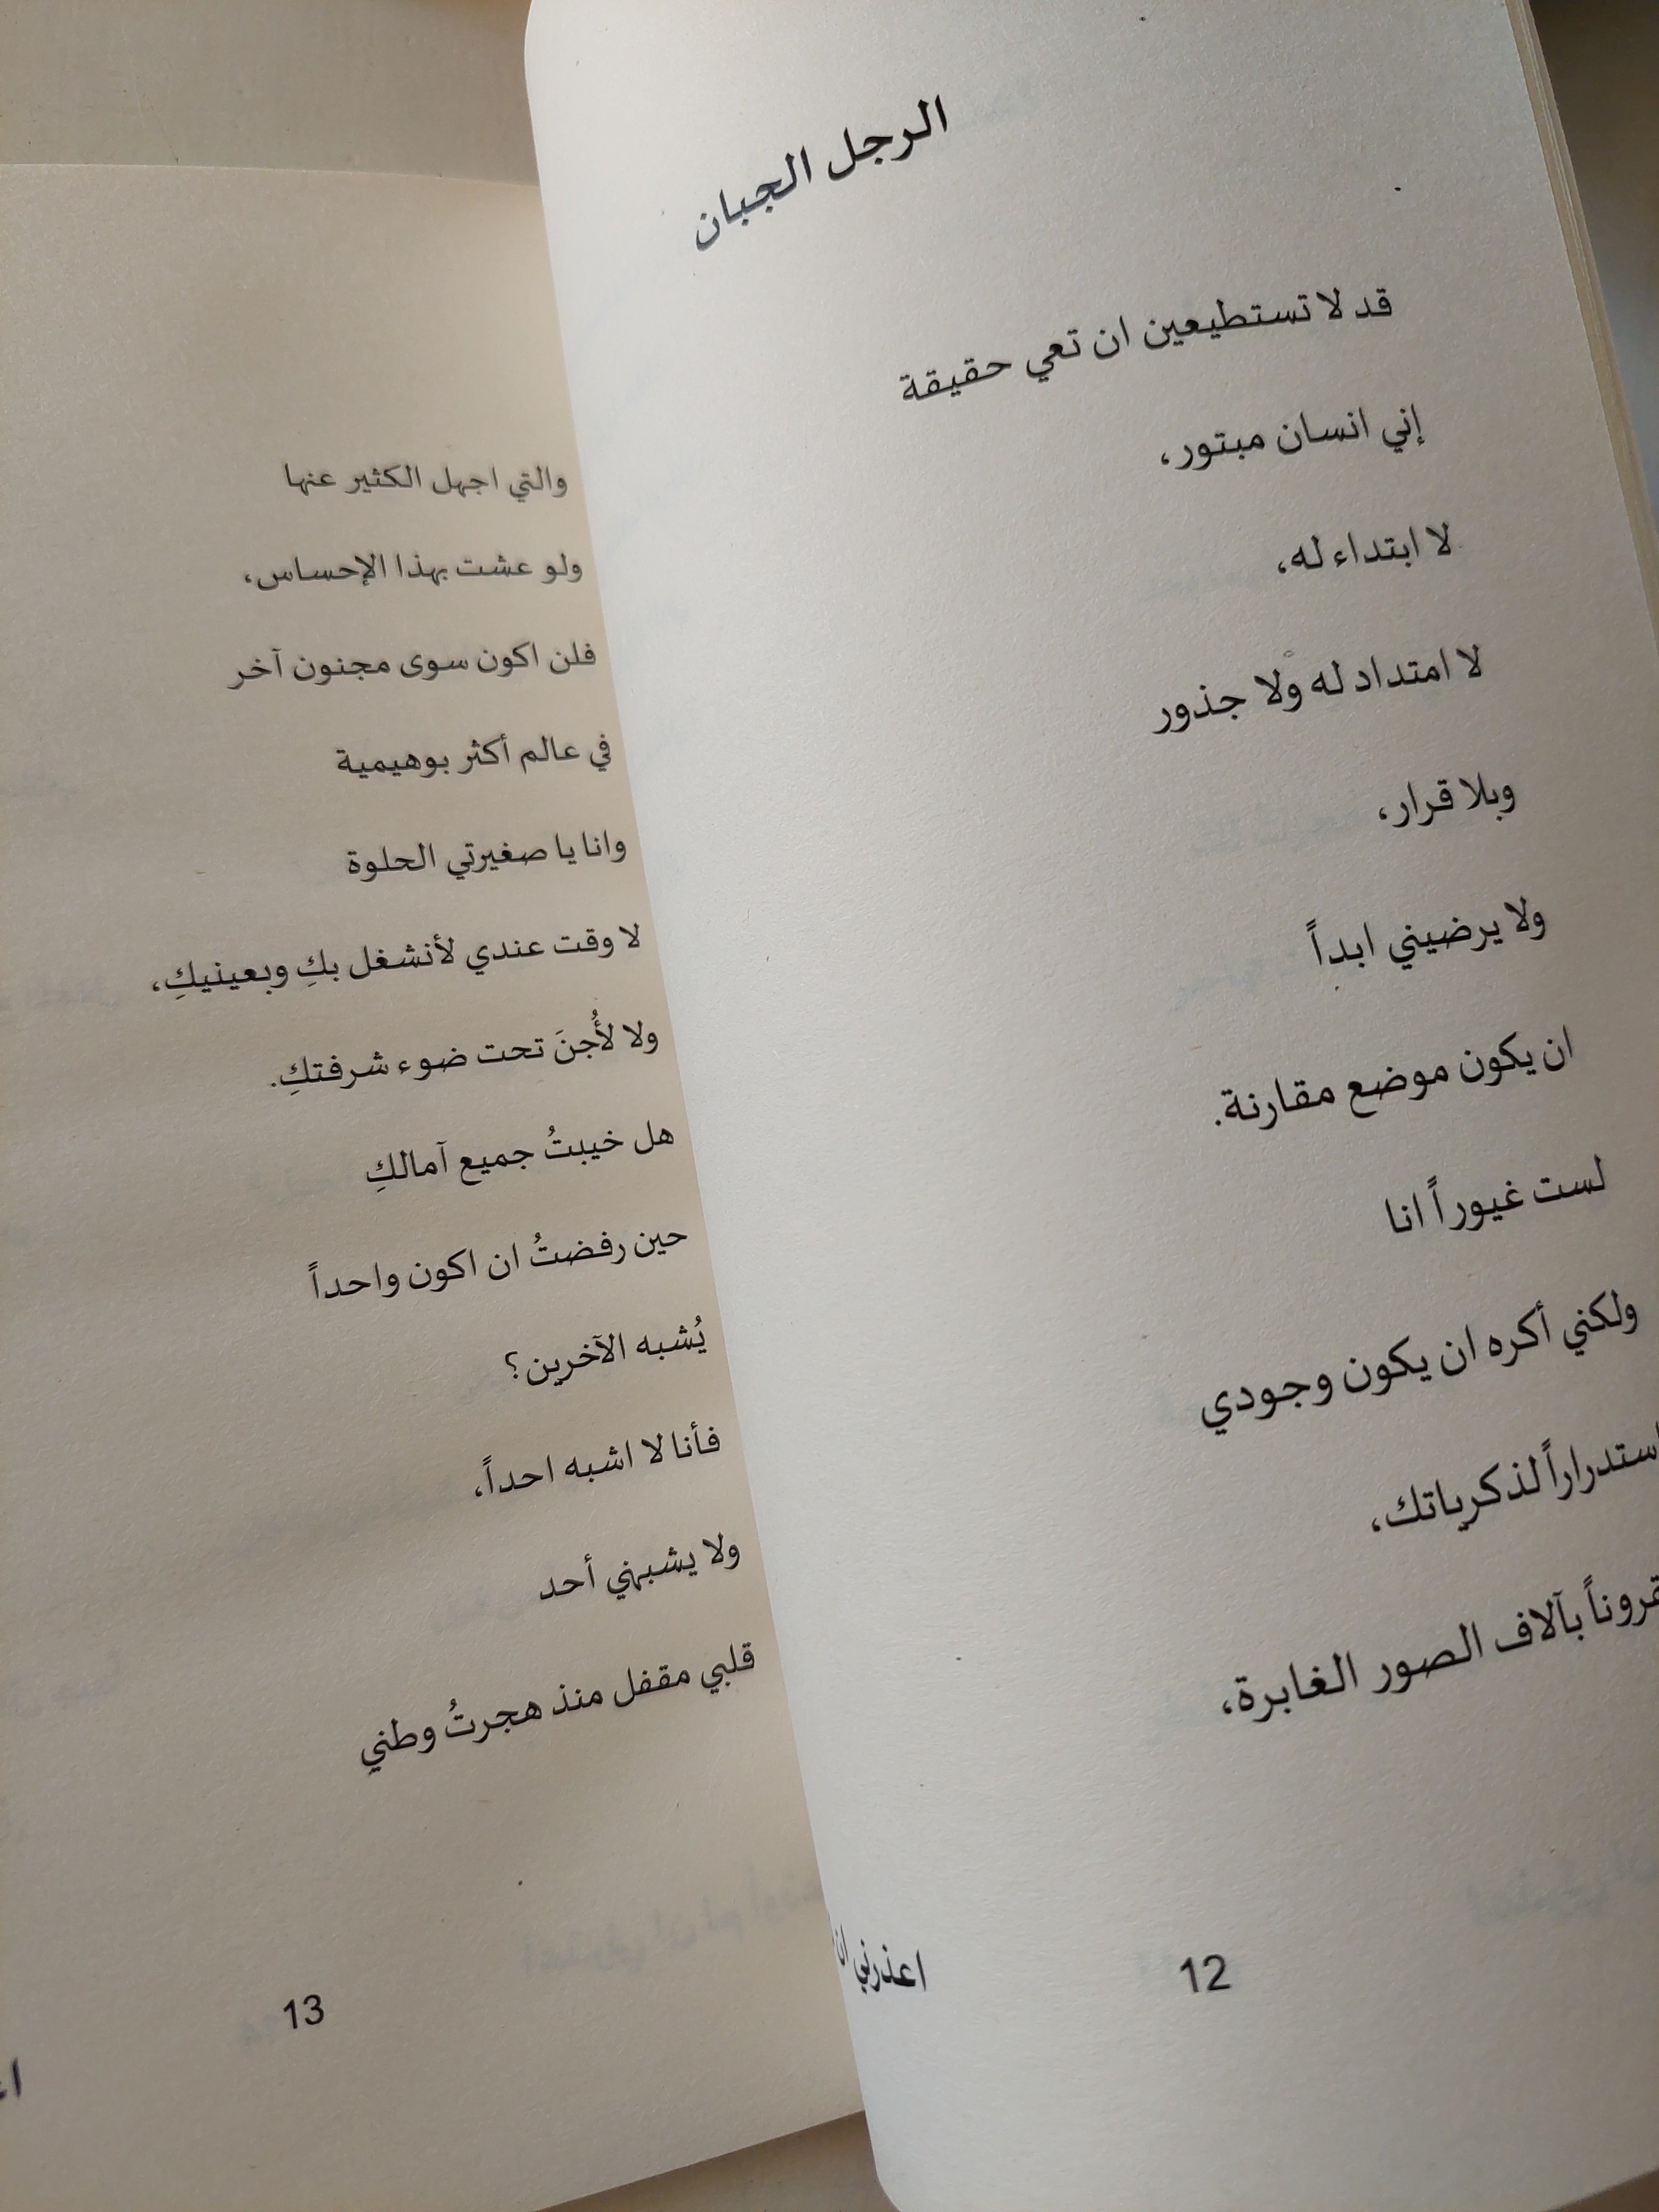 الرجل الجبان
قد لا تستطيعين ان تعي حقيقة
إني انسان مبتور،
لا ابتداء له،
لا امتداد له ولا جذور
وبلا قرار،
ولا يرضيني ابداً
ان يكون موضع مقارنة.
لست غيوراً انا
ولكني أكره ان يكون وجودي
استدراراً لذكرياتك،
بآلاف الصور الغابرة،
12
اعذرني ان
والتي اجهل الكثير عنها
ولو عشت بهذا الإحساس،
فلن اكون سوى مجنون آخر
في عالم أكثر بوهيمية
وانا يا صغيرتي الحلوة
لا وقت عندي لأنشغل بكِ وبعينيكِ،
ولا لأُجنَ تحت ضوء شرفتكِ.
هل خيبتُ جميع آمالكِ
حين رفضتُ ان اكون واحداً
يُشبه الآخرين؟
فأنا لا اشبه احداً،
ولا يشبهني أحد
قلبي مقفل منذ هجرتُ وطني
13